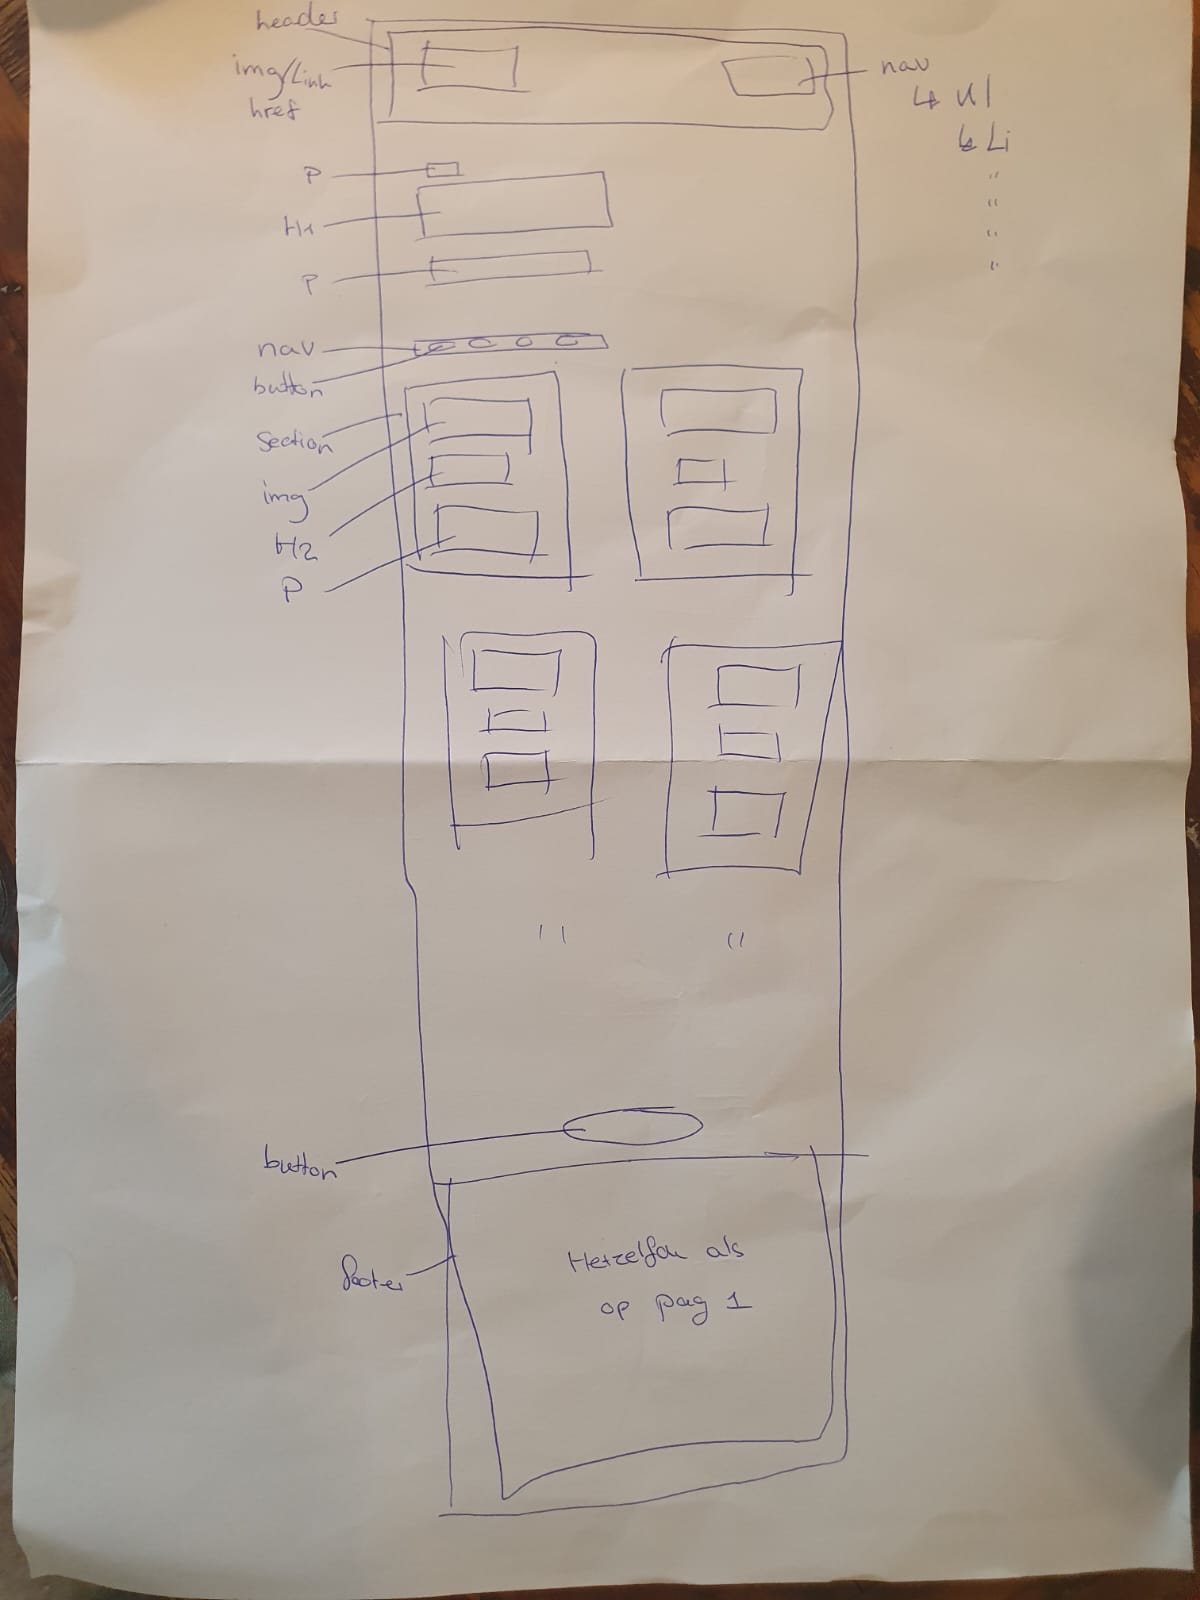 header
img/Link
href
nav
↳ Ul
↳ Li
"
"
"
"
P
H1
P
nav
button
Section
img
H2
P
" "
button
footer
Hetzelfde als
op pag 1